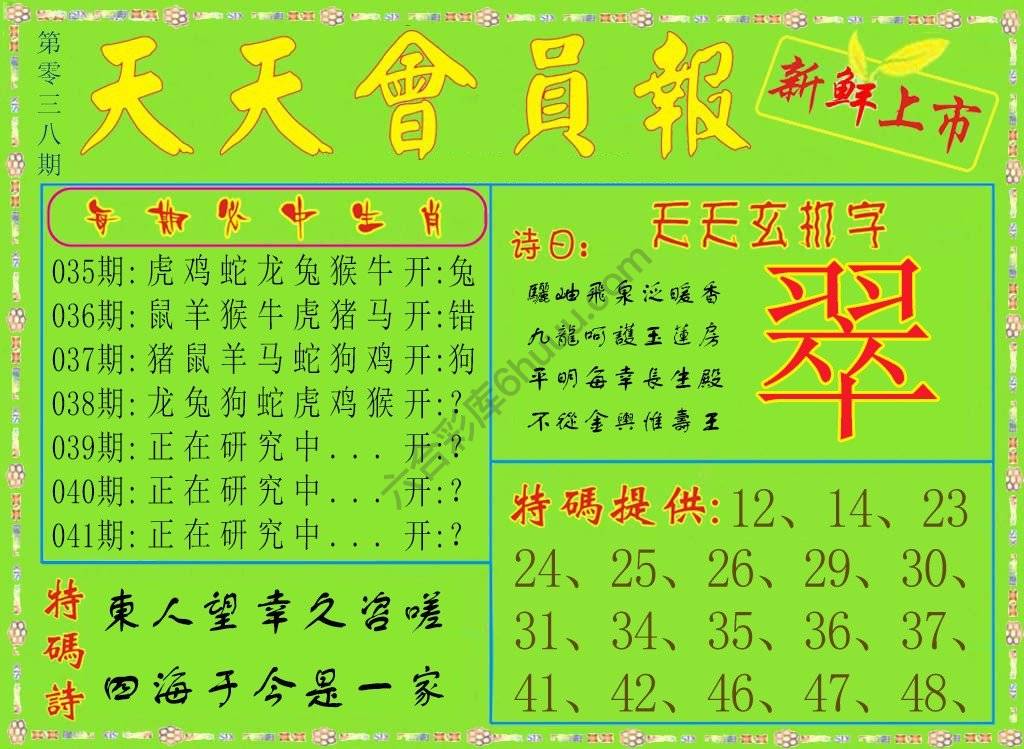 第零三八期
天天會員報
新鲜上市
每期必中生肖
035期:虎鸡蛇龙兔猴牛开:兔
036期:鼠羊猴牛虎猪马开:错
037期:猪鼠羊马蛇狗鸡开:狗
038期:龙兔狗蛇虎鸡猴开:?
039期:正在研究中...开:?
040期:正在研究中...开:?
041期:正在研究中...开:?
天天玄机字
诗曰:
驪岫飛泉泛暖香
九龍呵護玉蓮房
平明每幸長生殿
不從金輿惟壽王
翠
特碼提供:12、14、23
24、25、26、29、30、
31、34、35、36、37、
41、42、46、47、48、
特碼詩
東人望幸久咨嗟
四海于今是一家
六合彩库6hutu.com